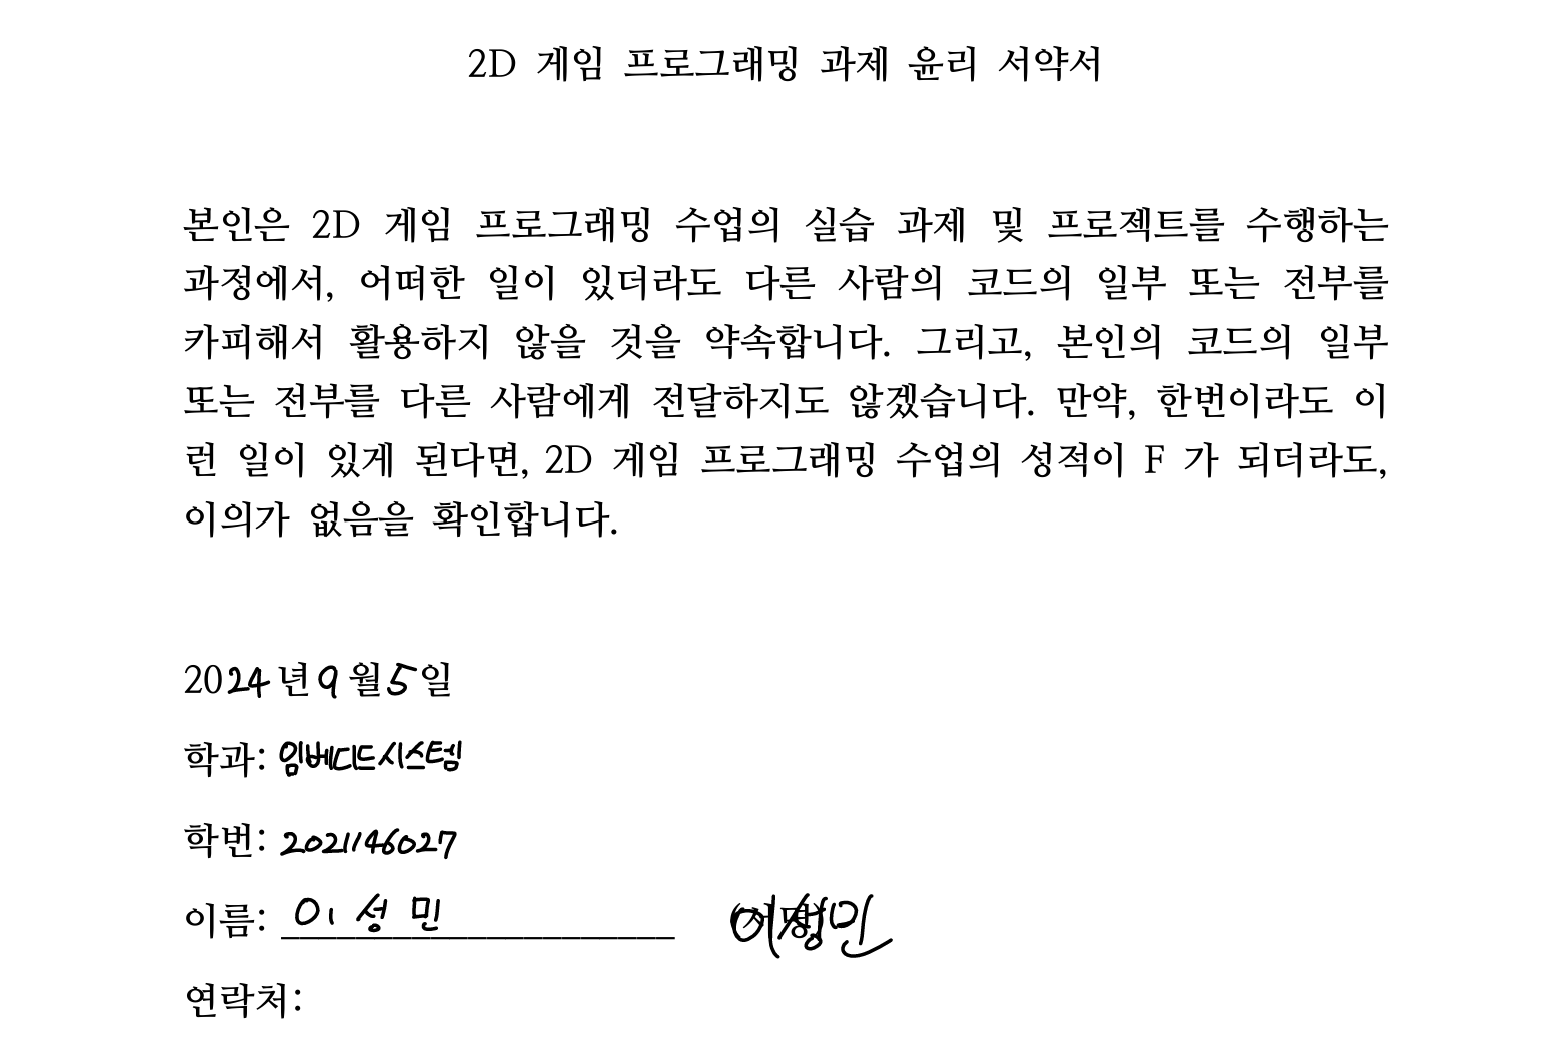 2D 게임 프로그래밍 과제 윤리 서약서
본인은 2D 게임 프로그래밍 수업의 실습 과제 및 프로젝트를 수행하는
과정에서, 어떠한 일이 있더라도 다른 사람의 코드의 일부 또는 전부를
카피해서 활용하지 않을 것을 약속합니다. 그리고, 본인의 코드의 일부
또는 전부를 다른 사람에게 전달하지도 않겠습니다. 만약, 한번이라도 이
런 일이 있게 된다면, 2D 게임 프로그래밍 수업의 성적이 F 가 되더라도,
이의가 없음을 확인합니다.
2024년 9월 5일
학과: 임베디드시스템
학번: 2021146027
이름: 이성민 (서명) 이성민
연락처: